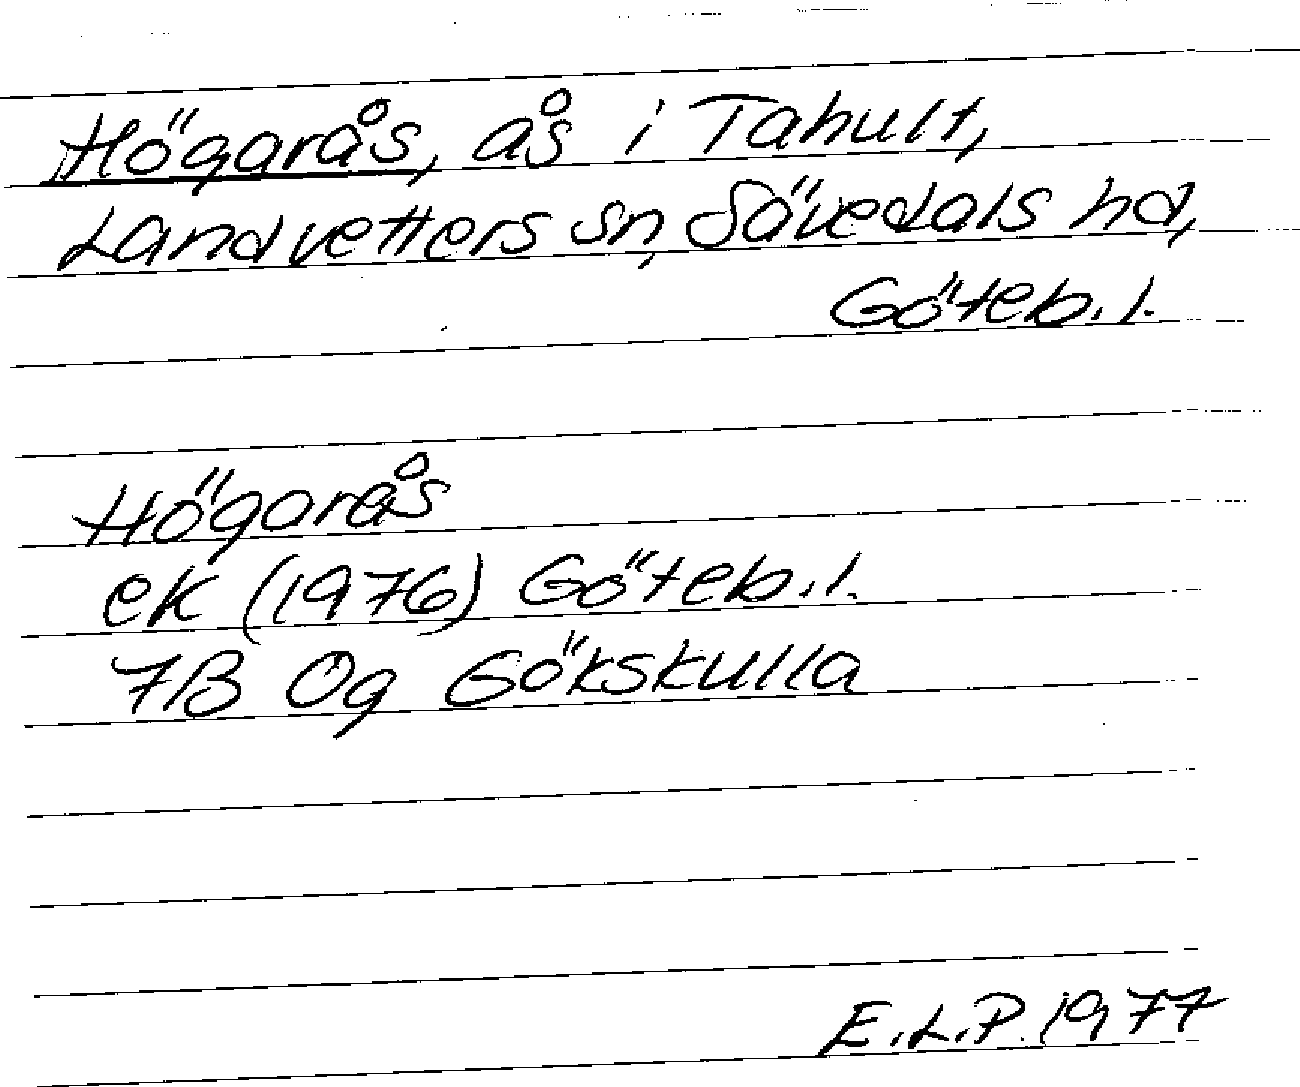 Högarås, ås i Tahult,
Landvetters sn, Sävedals hd,
Göteb. l.
Högarås
ek (1976) Göteb. l.
7B 0g Gökskulla
E.L.P. 1977